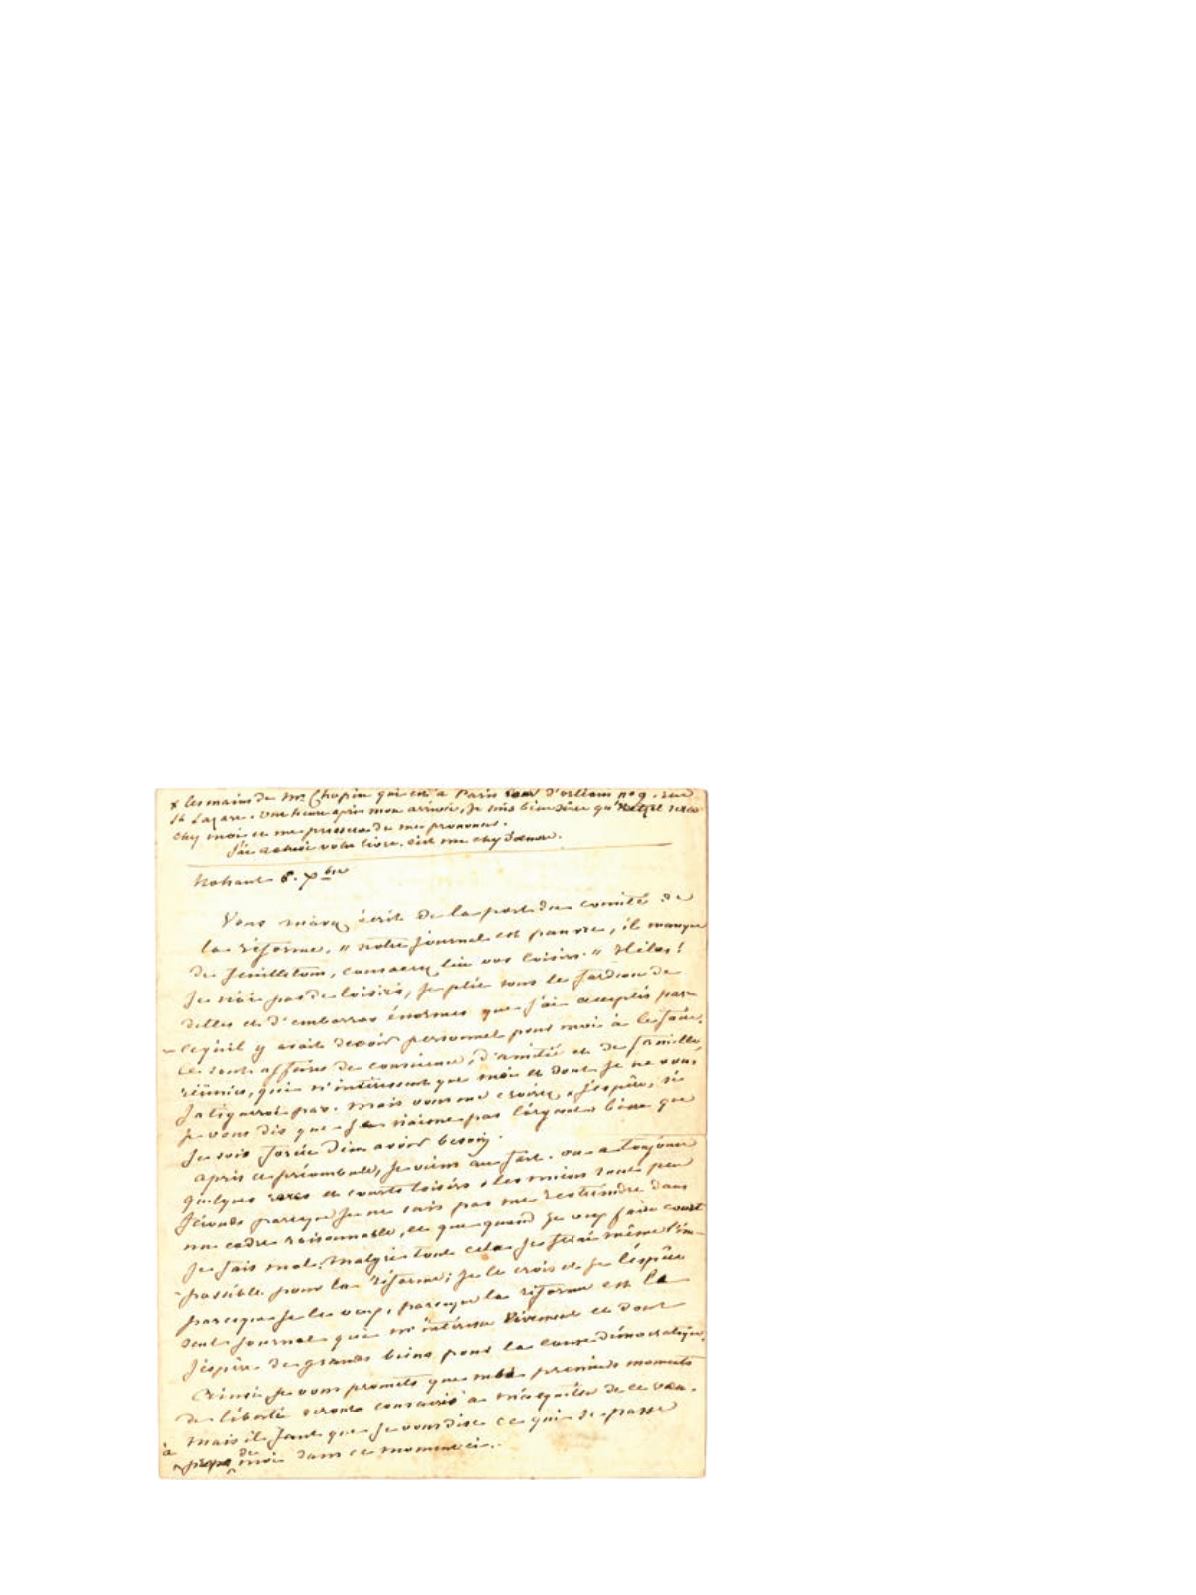 x les mains de Mr Chopin qui est à Paris cour d'orléans no 9. rue
St Lazare. une heure après mon arrivée, je suis bien sûre qu'Hetzel sera
chez moi et me pressera de me prononcer.
J'ai achevé votre livre. c'est un chef d'œuvre.
Nohant 8. Xbre
Vous m'avez écrit de la part du comité de
la réforme, « notre journal est pauvre, il manque
de feuilleton, consacrez lui vos loisirs. » Hélas!
Je n'ai pas de loisirs, je plie sous le fardeau de
dettes et d'embarras énormes que j'ai acceptés par
ce qu'il y avait devoir personnel pour moi à le faire.
Ce sont affaires de conscience, d'amitié et de famille
réunies, qui n'intéressent que moi et dont je ne vous
fatiguerai pas. Mais vous me croirez, j'espère, si
je vous dis que je n'aime pas l'argent bien que
je sois forcée d'en avoir besoin.
après ce préambule, je viens au fait. on a toujours
quelques rares et courts loisirs. les miens sont peu
féconds parceque je ne sais pas me restreindre dans
un cadre raisonnable, et que quand je veux faire court
je fais mal. Malgré tout cela je ferai même l'im-
-possible pour la réforme; je le crois et je l'espère
parceque je le veux, parceque la réforme est le
seul journal qui m'intéresse vivement et dont
j'espère de grands biens pour la cause démocratique.
Ainsi je vous promets que mes premiers moments
de liberté seront consacrés à m'acquitter de ce vœu.
Mais il faut que je vous dise ce qui se passe
à propos de moi dans ce moment ci.